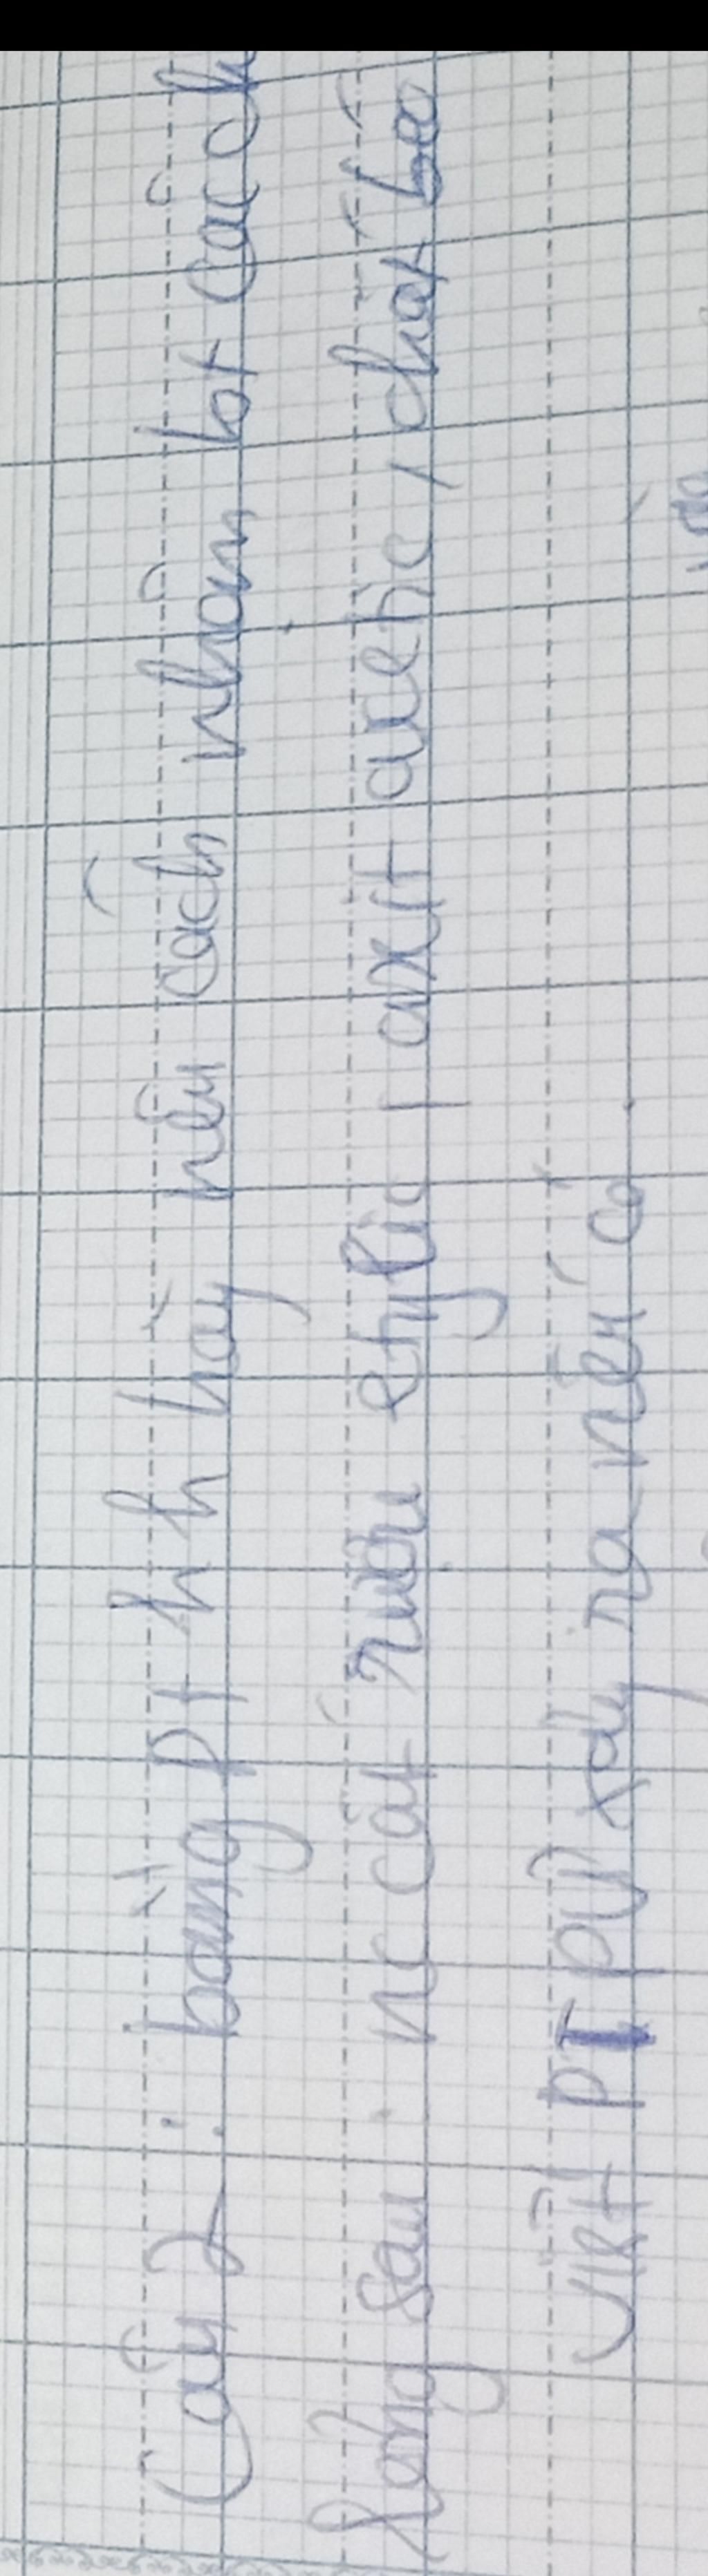 Câu 2: bằng pt h h hãy nêu cách nhận bết các ch
lỏng sau: nc cất rượu etylic, axit axetic, chất béo
Viết PT PƯ xảy ra nếu có.